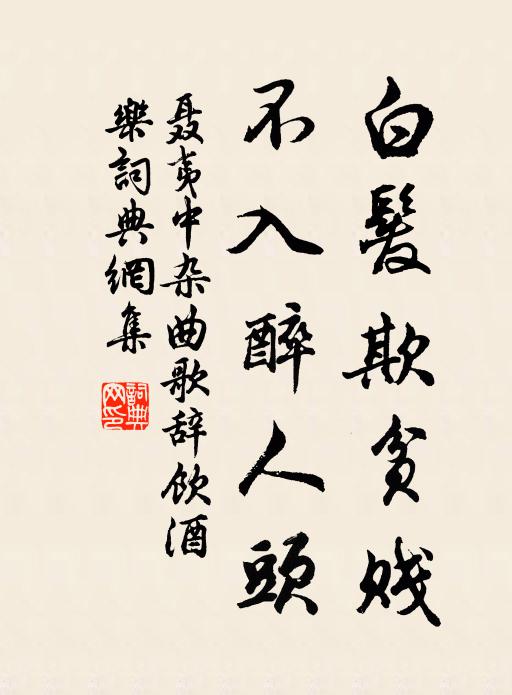 白髮欺貧賤
不入醉人頭
聂夷中杂曲歌辞饮酒
樂詞典網集
詞典
网印